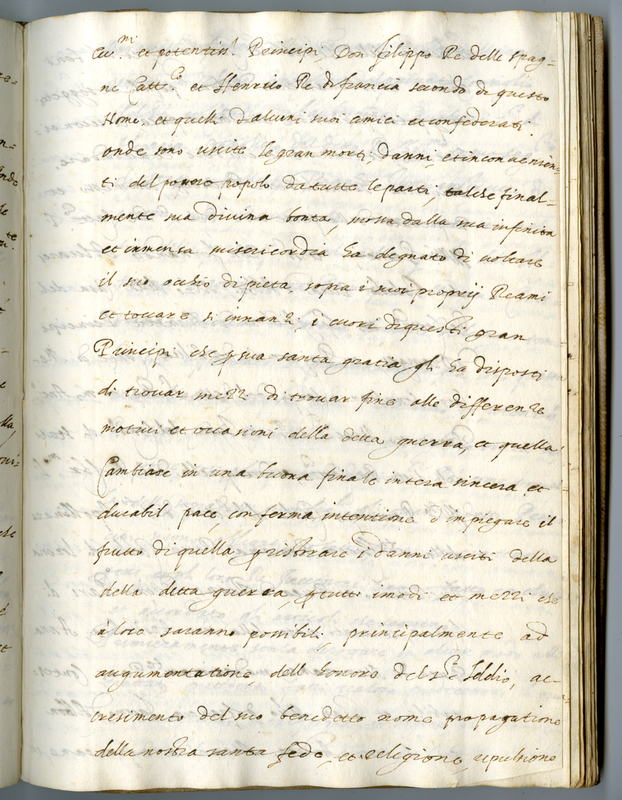 Ecc.mi et potentiss.i Principi, Don Filippo Re delle Spag=
ne Catt.co et Henrico Re di francia secondo di questo
Nome, et quelli d'alcuni suoi amici et confederati.
onde sono uscite le gran morti, danni, et inconuenien=
ti del povero popolo da tutte le parti, talche final=
mente sua divina bonta, mossa dalla sua infinita
et inmensa misericordia ha degnato di uoltare
il suo ochio di pieta, sopra i suoi proprij Reami
et tocare si innanzi i cuori di questi gran
Principi che p sua santa gratia gli ha disposti
di trouar mezzi di trouar fine alle differenze
motiui et occasioni della detta guerra, et quella
Cambiare in una buona finale intera sincera et
durabil pace, con ferma intentione d'impiegare il
frutto di quella p ristorare i danni usciti della
della detta guerra, p tutti i modi et mezzi che
à loro saranno possibili principalmente ad
augumentatione dell honore del S.re Iddio, ac=
crescimento del suo benedetto nome propagatione
della nostra santa fede, et religione, repulsione